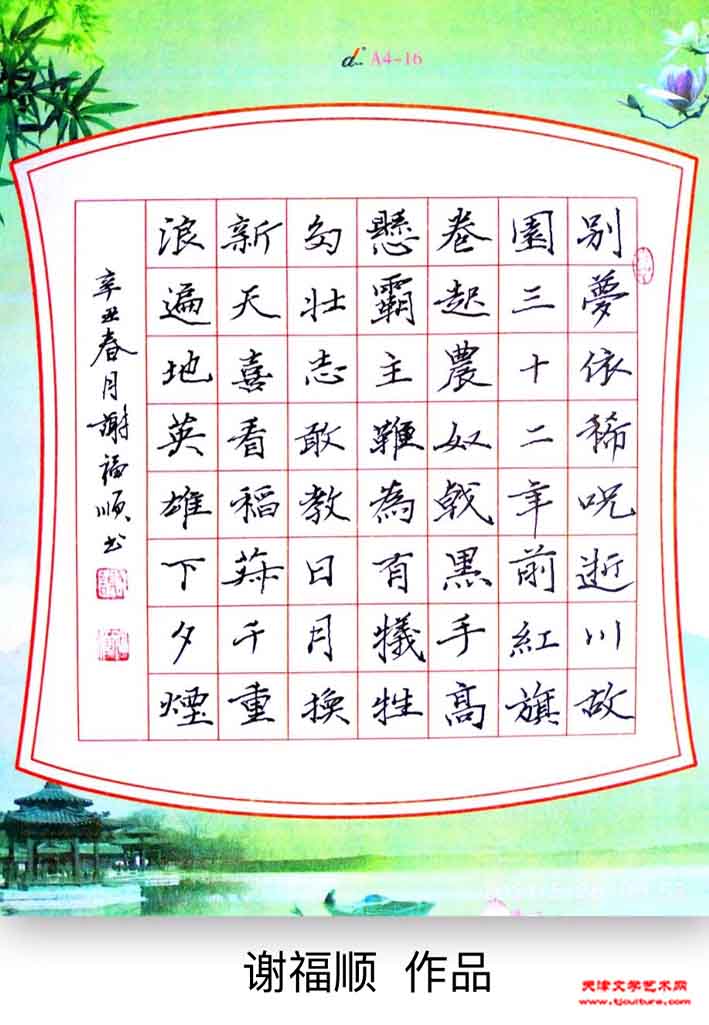 A4-16
别夢依稀呪逝川故
園三十二年前紅旗
卷起農奴戟黑手高
懸霸主鞭為有犧牲
多壮志敢教日月換
新天喜看稻菽千重
浪遍地英雄下夕煙
辛丑春月謝福順书
谢福顺 作品
天津文学艺术网
www.tjculture.com